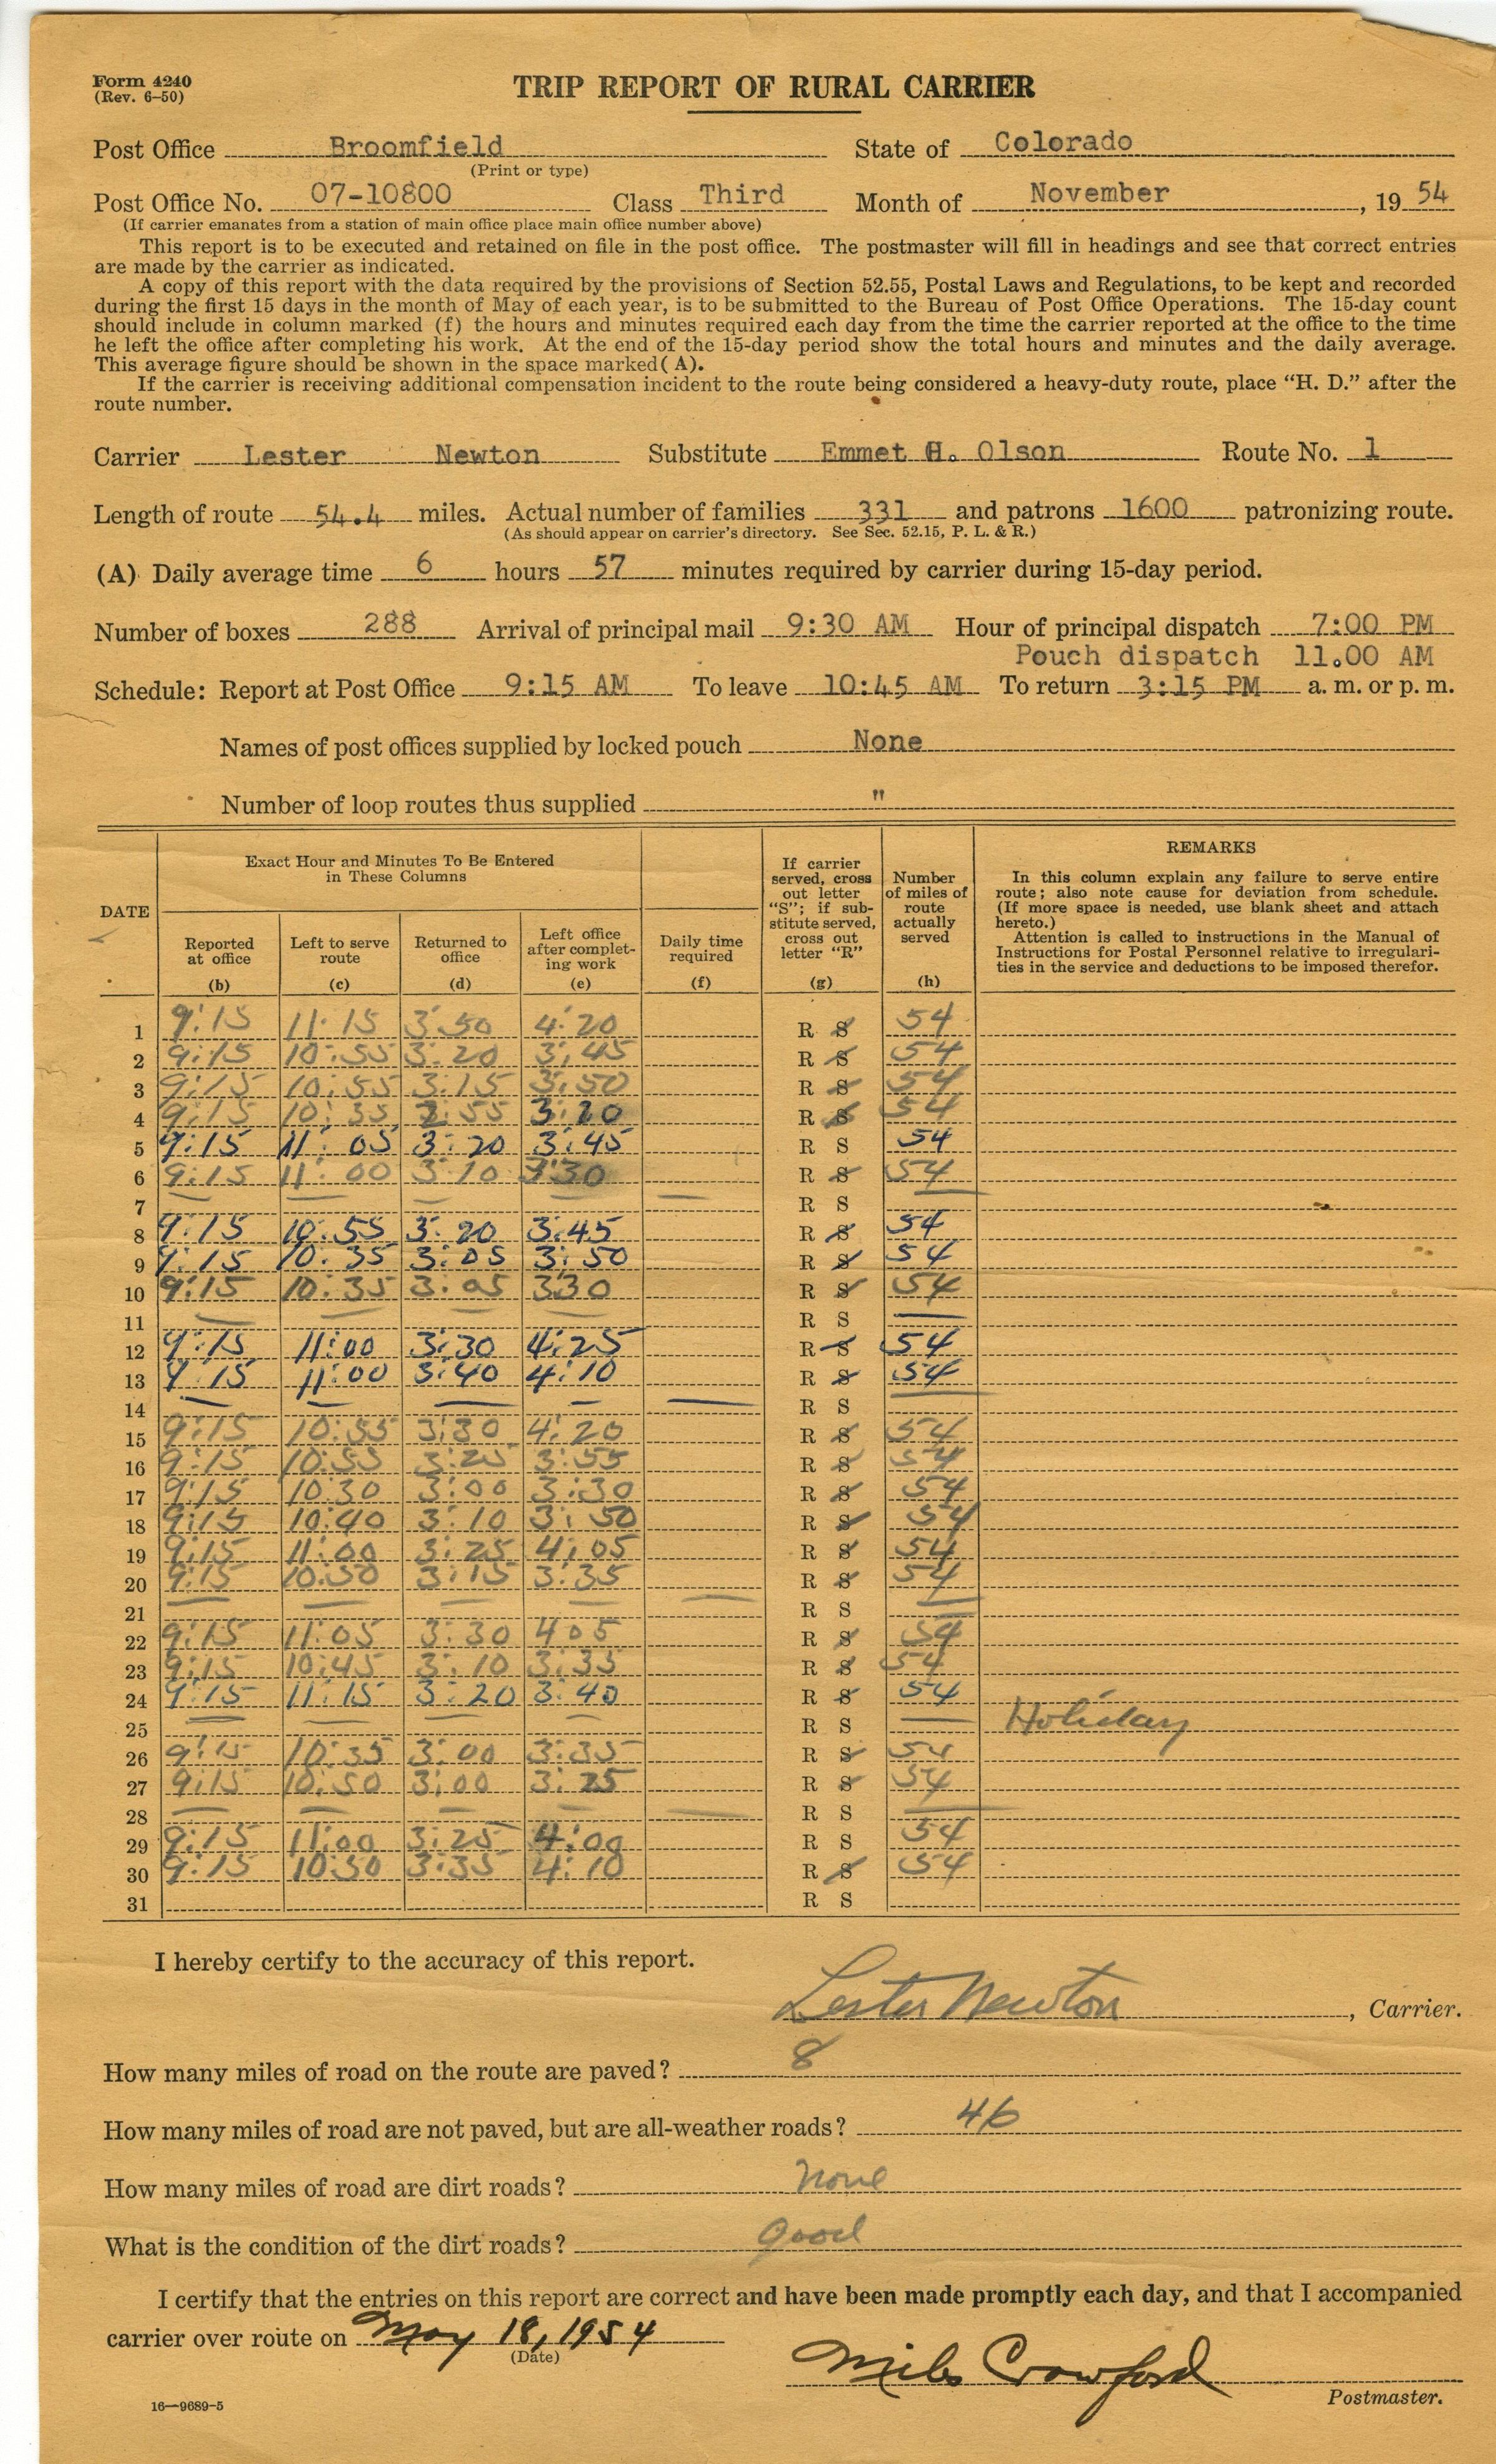 Form 4240
(Rev. 6-50)
TRIP REPORT OF RURAL CARRIER
Post Office Broomfield State of Colorado
(Print or type)
Post Office No. 07-10800 Class Third Month of November, 19 54
(If carrier emanates from a station of main office place main office number above)
This report is to be executed and retained on file in the post office. The postmaster will fill in headings and see that correct entries
are made by the carrier as indicated.
A copy of this report with the data required by the provisions of Section 52.55, Postal Laws and Regulations, to be kept and recorded
during the first 15 days in the month of May of each year, is to be submitted to the Bureau of Post Office Operations. The 15-day count
should include in column marked (f) the hours and minutes required each day from the time the carrier reported at the office to the time
he left the office after completing his work. At the end of the 15-day period show the total hours and minutes and the daily average.
This average figure should be shown in the space marked (A).
If the carrier is receiving additional compensation incident to the route being considered a heavy-duty route, place "H. D." after the
route number.
Carrier Lester Newton Substitute Emmet H. Olson Route No. 1
Length of route 54.4 miles. Actual number of families 331 and patrons 1600 patronizing route.
(As should appear on carrier's directory. See Sec. 52.15, P. L. & R.)
(A) Daily average time 6 hours 57 minutes required by carrier during 15-day period.
Number of boxes 288 Arrival of principal mail 9:30 AM Hour of principal dispatch 7:00 PM
Pouch dispatch 11.00 AM
Schedule: Report at Post Office 9:15 AM To leave 10:45 AM To return 3:15 PM a. m. or p. m.
Names of post offices supplied by locked pouch None
Number of loop routes thus supplied "
DATE
Exact Hour and Minutes To Be Entered
in These Columns
Reported
at office
(b)
Left to serve
route
(c)
Returned to
office
(d)
Left office
after complet-
ing work
(e)
Daily time
required
(f)
If carrier
served, cross
out letter
"S"; if sub-
stitute served,
cross out
letter "R"
(g)
Number
of miles of
route
actually
served
(h)
REMARKS
In this column explain any failure to serve entire
route; also note cause for deviation from schedule.
(If more space is needed, use blank sheet and attach
hereto.)
Attention is called to instructions in the Manual of
Instructions for Postal Personnel relative to irregulari-
ties in the service and deductions to be imposed therefor.
1 9:15 11:15 3:50 4:20 R S 54
2 9:15 10:55 3:20 3:45 R S 54
3 9:15 10:55 3:15 3:50 R S 54
4 9:15 10:35 2:55 3:20 R S 54
5 9:15 11:05 3:20 3:45 R S 54
6 9:15 11:00 3:10 3:30 R S 54
7 R S
8 9:15 10:55 3:20 3:45 R S 54
9 9:15 10:35 3:05 3:50 R S 54
10 9:15 10:35 3:05 330 R S 54
11 R S
12 9:15 11:00 3:30 4:25 R S 54
13 9:15 11:00 3:40 4:10 R S 54
14 R S
15 9:15 10:55 3:30 4:20 R S 54
16 9:15 10:55 3:25 3:55 R S 54
17 9:15 10:30 3:00 3:30 R S 54
18 9:15 10:40 3:10 3:50 R S 54
19 9:15 11:00 3:25 4:05 R S 54
20 9:15 10:50 3:15 3:35 R S 54
21 R S
22 9:15 11:05 3:30 405 R S 54
23 9:15 10:45 3:10 3:35 R S 54
24 9:15 11:15 3:20 3:40 R S 54
25 R S Holiday
26 9:15 10:35 3:00 3:35 R S 54
27 9:15 10:50 3:00 3:25 R S 54
28 R S
29 9:15 11:00 3:25 4:00 R S 54
30 9:15 10:50 3:35 4:10 R S 54
31 R S
I hereby certify to the accuracy of this report.
Lester Newton, Carrier.
How many miles of road on the route are paved? 8
How many miles of road are not paved, but are all-weather roads? 46
How many miles of road are dirt roads? none
What is the condition of the dirt roads? good
I certify that the entries on this report are correct and have been made promptly each day, and that I accompanied
carrier over route on May 18, 1954
(Date)
Miles Crawford
Postmaster.
16—9689-5